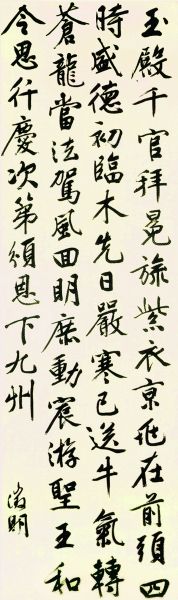 玉殿千官拜冕旒紫衣京兆在前頭四
時盛德初臨木先日嚴寒已送牛氣轉
蒼龍當法駕風回明庶動宸游聖王和
令思行慶次第頒恩下九州
明